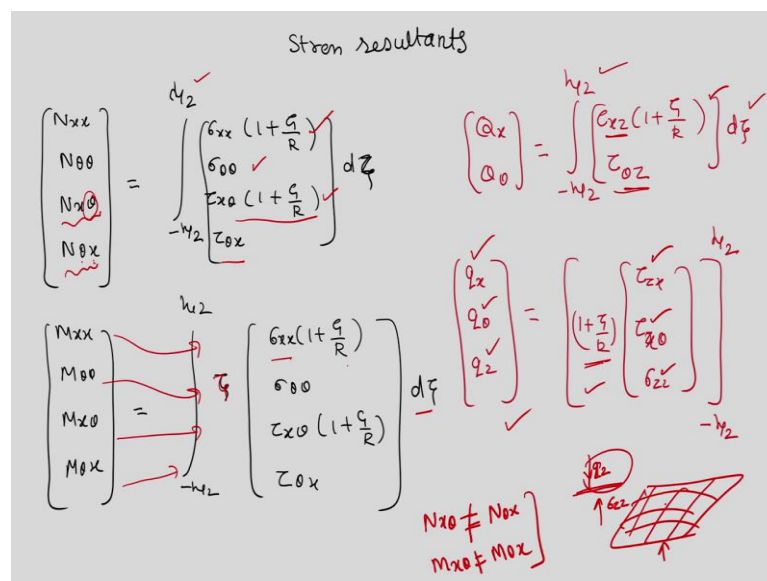 Stress resultants
[Nxx Nθθ Nxθ Nθx] = ∫_{-h/2}^{h/2} [σxx (1+ζ/R) σθθ τxθ (1+ζ/R) τθx] dζ
[Qx Qθ] = ∫_{-h/2}^{h/2} [τxz (1+ζ/R) τθz] dζ
[Mxx Mθθ Mxθ Mθx] = ∫_{-h/2}^{h/2} ζ [σxx(1+ζ/R) σθθ τxθ (1+ζ/R) τθx] dζ
[qx qθ qz] = [(1+ζ/R) [τzx τzθ σzz]]_{-h/2}^{h/2}
qz
σzz
Nxθ ≠ Nθx
Mxθ ≠ Mθx